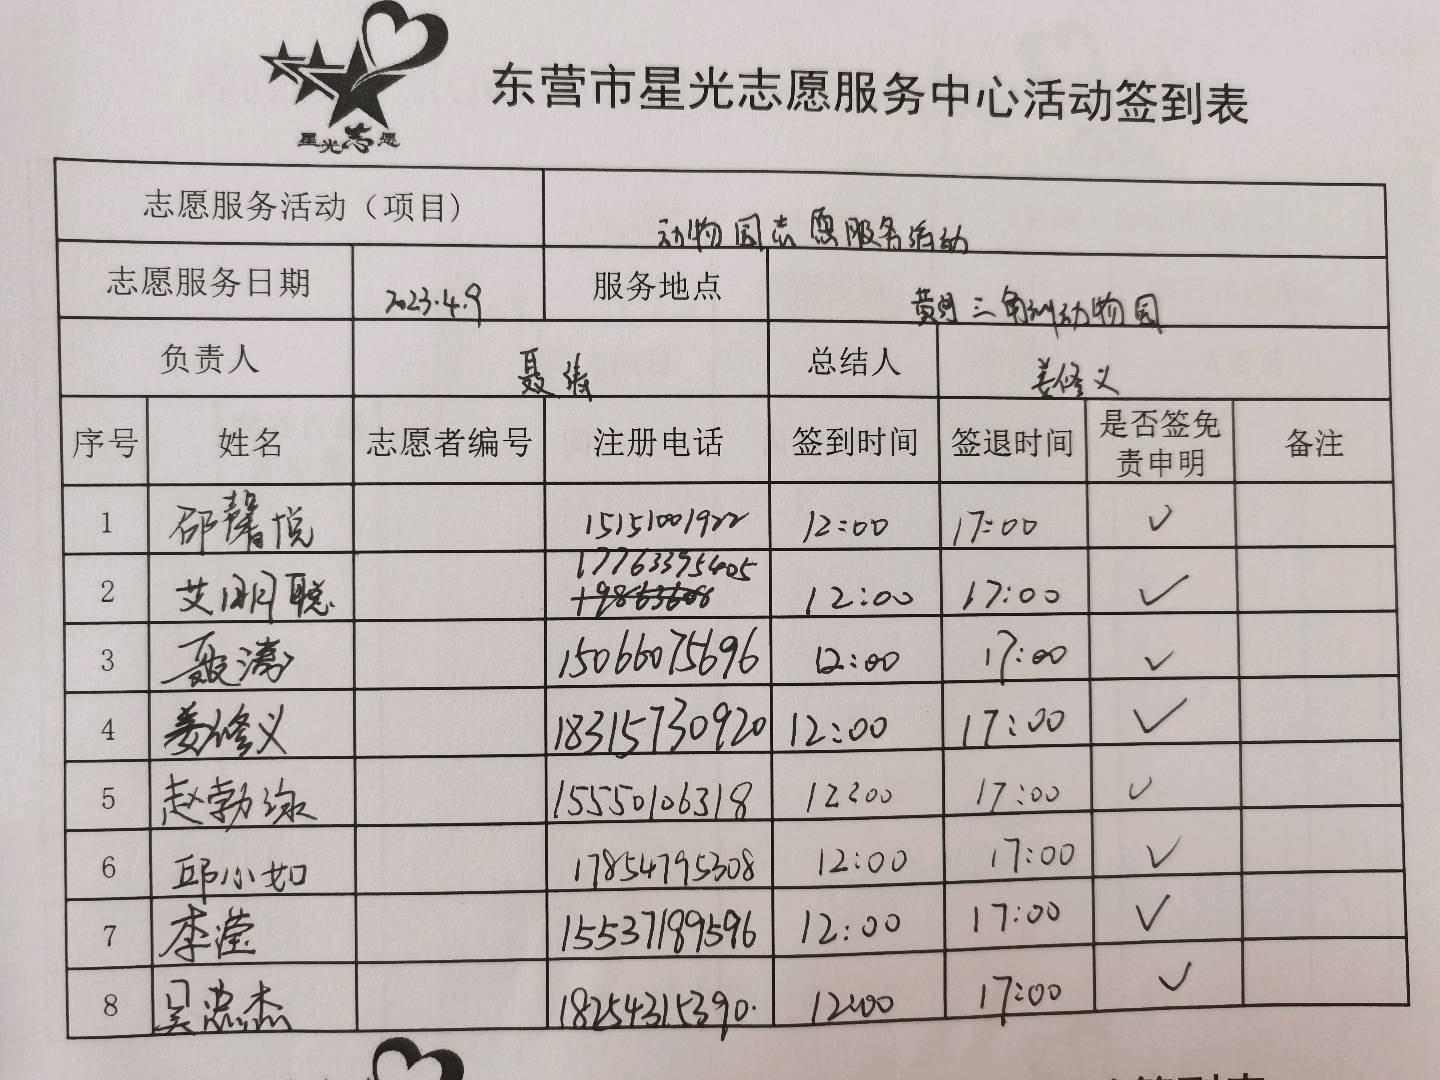 星光志愿
东营市星光志愿服务中心活动签到表
志愿服务活动（项目） 动物园志愿服务活动
志愿服务日期 2023.4.9 服务地点 黄河三角洲动物园
负责人 聂涛 总结人 姜修义
序号 姓名 志愿者编号 注册电话 签到时间 签退时间 是否签免责申明 备注
1 邵馨悦 15151001922 12:00 17:00 ✓
2 艾明聪 17763395405 12:00 17:00 ✓
3 聂涛 15066075696 12:00 17:00 ✓
4 姜修义 18315730920 12:00 17:00 ✓
5 赵勃 15550106318 12:00 17:00 ✓
6 邱小如 17854795308 12:00 17:00 ✓
7 李滢 15537189596 12:00 17:00 ✓
8 吴忠杰 18254315390. 12:00 17:00 ✓